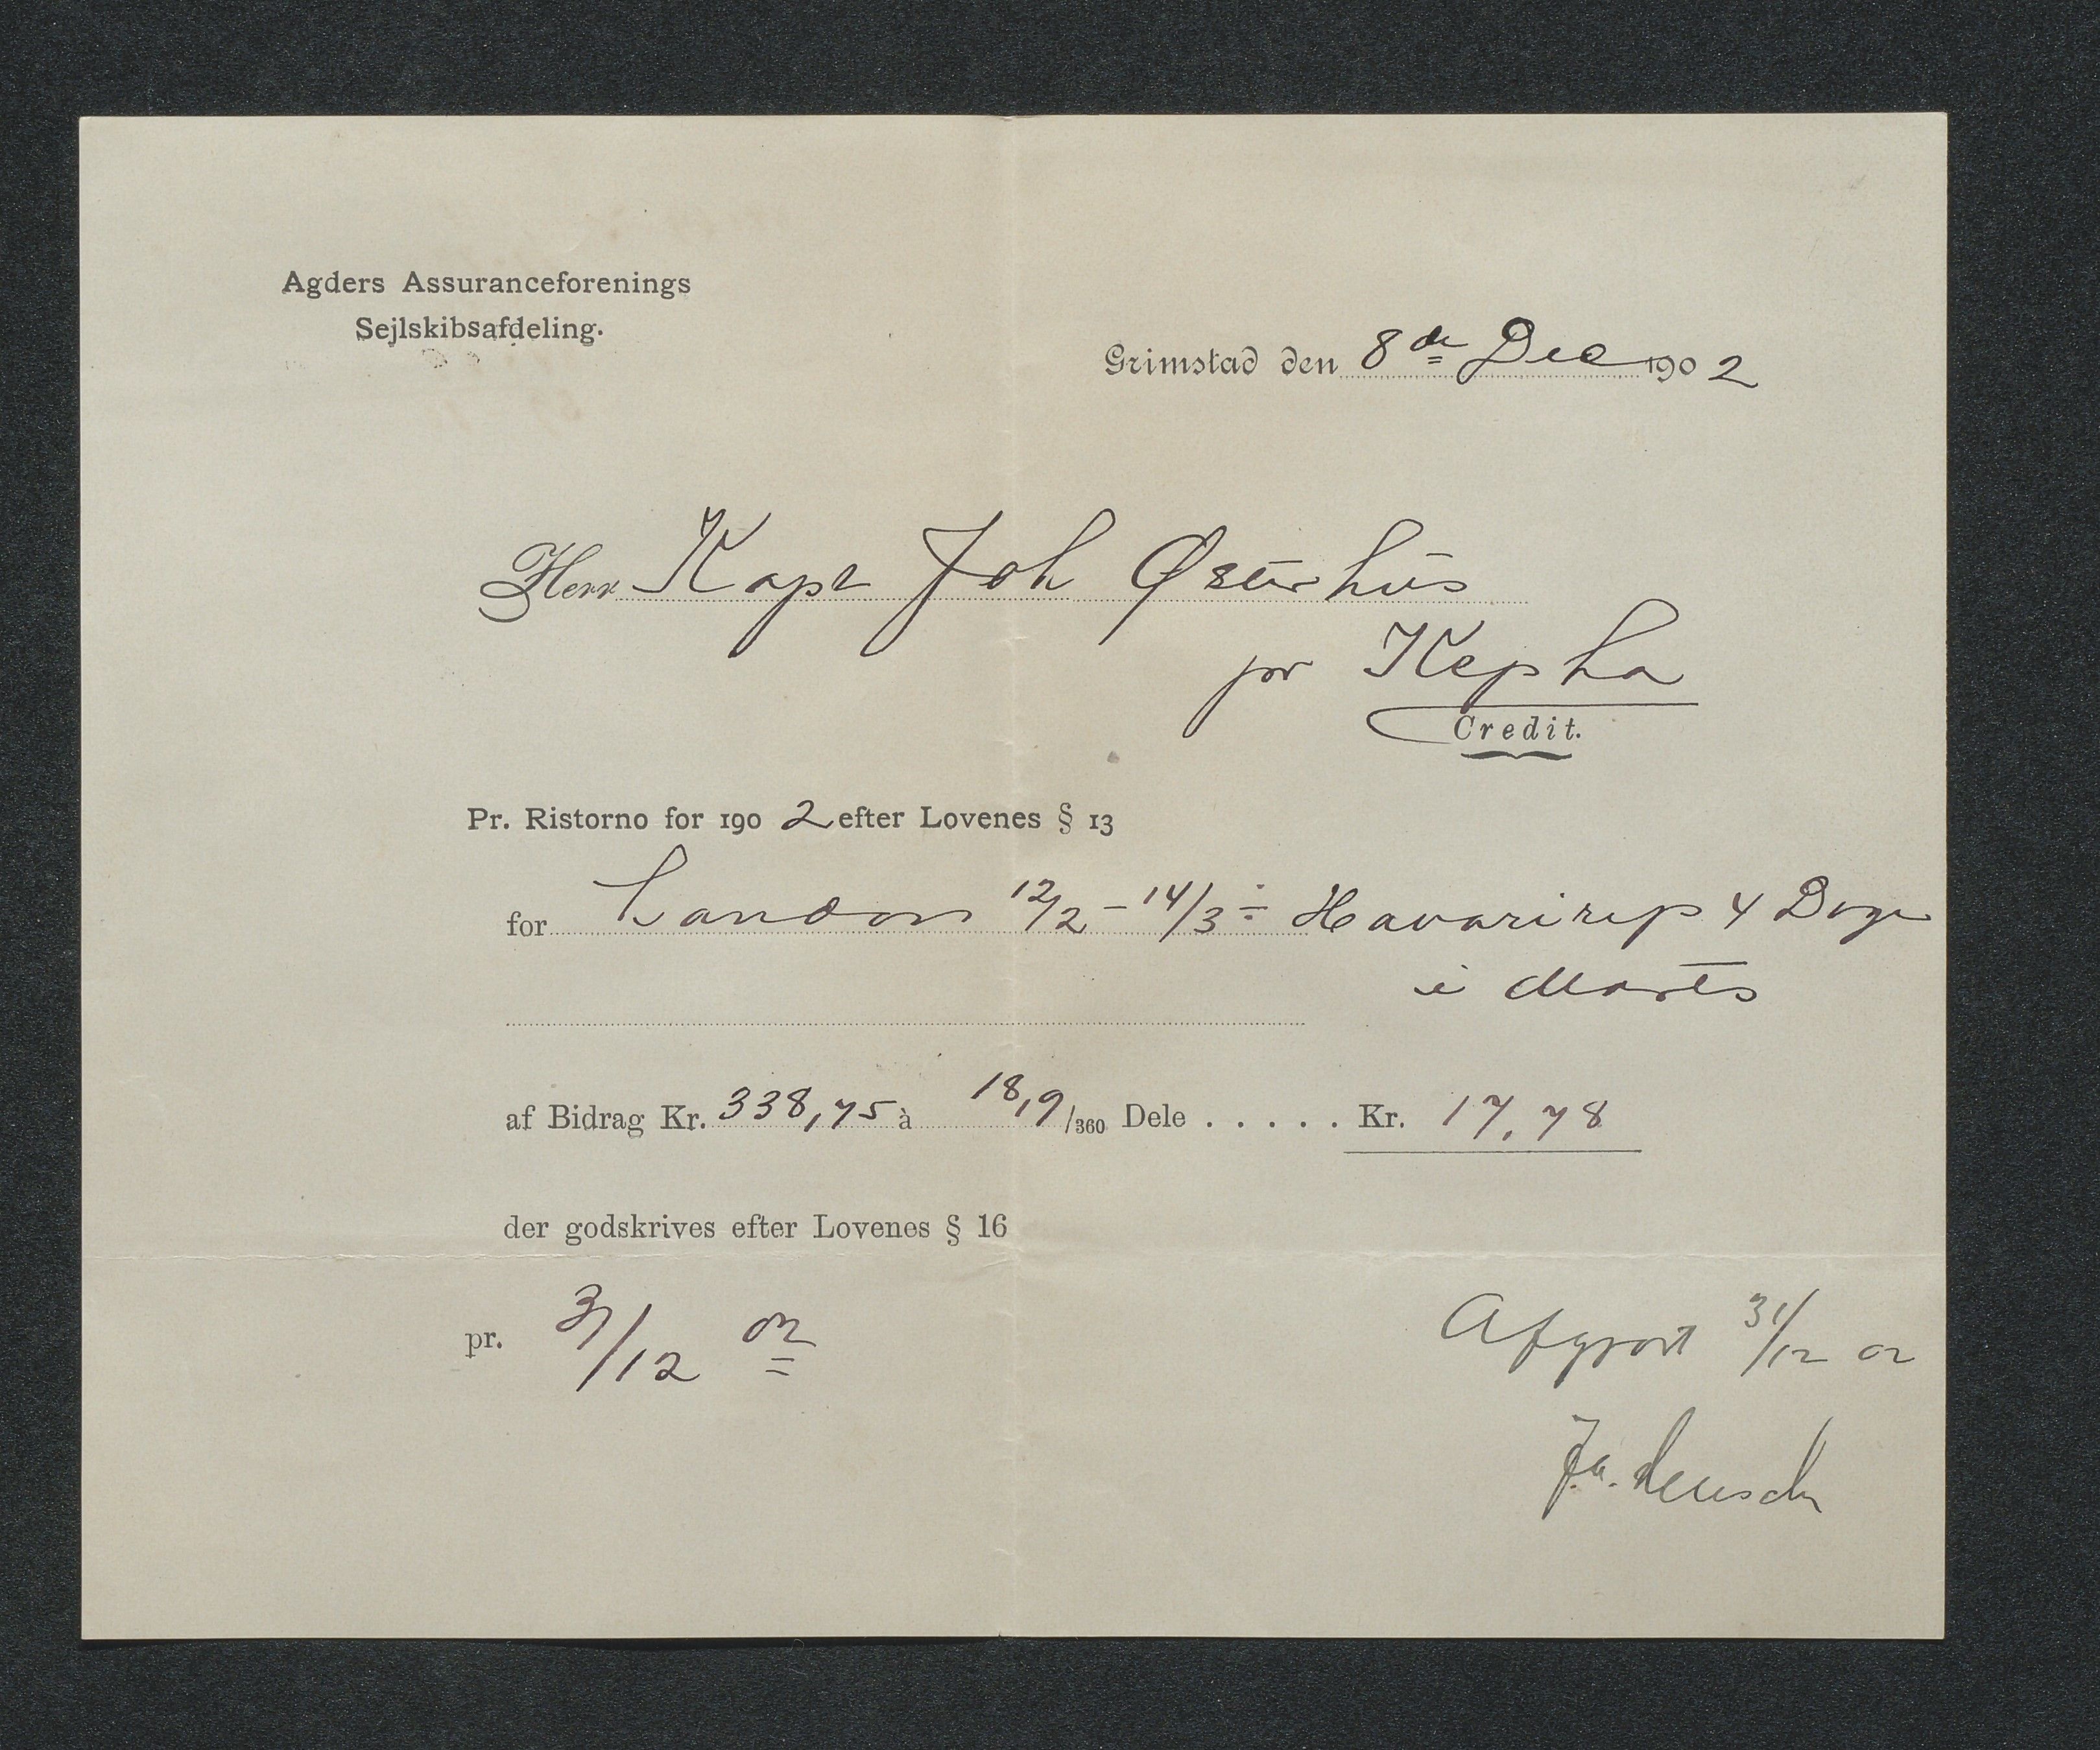 Agders Assuranceforenings
Sejlskibsafdeling.
Grimstad den 8de Dec 1902
Herr Kapt Joh Østerhus
pr Kepha
Credit.
Pr. Ristorno for 1902 efter Lovenes § 13
for London 12/2 – 14/3 ÷ Havarirep 4 Dage
i Marts
af Bidrag Kr. 338,75 à 18,9/360 Dele . . . . . Kr. 17,78
der godskrives efter Lovenes § 16
pr. 31/12 02
Afgjort 31/12 02